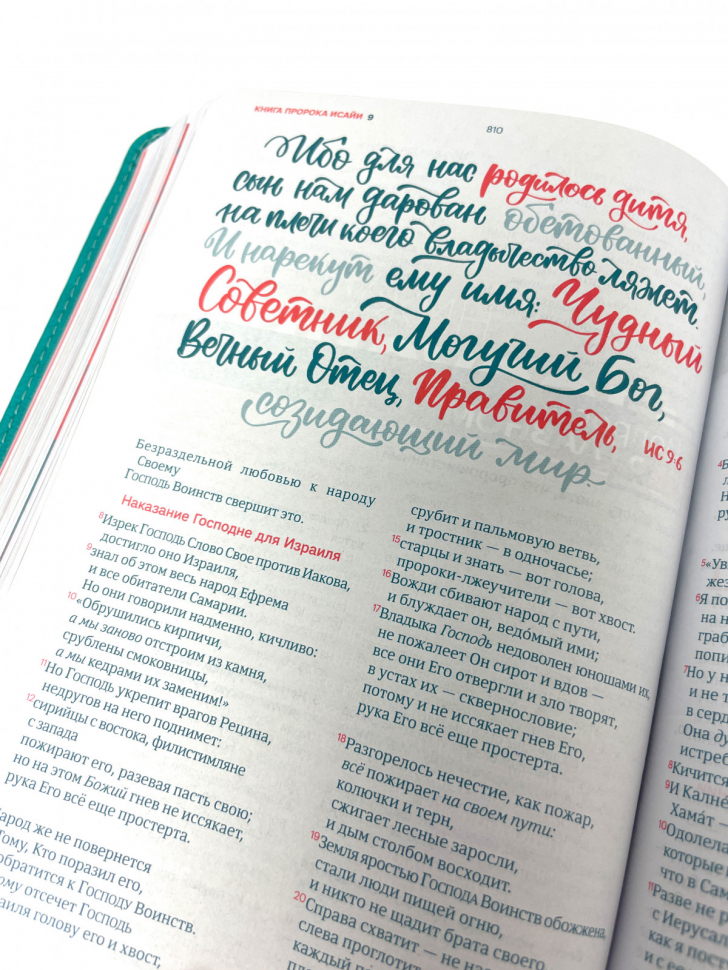 КНИГА ПРОРОКА ИСАЙИ 9
810
Ибо для нас родилось дитя,
сын нам дарован обетованный,
на плечи коего владычество ляжет.
И нарекут ему имя: Чудный
Советник, Могучий Бог,
Вечный Отец, Правитель,
созидающий мир
ИС 9:6
Безраздельной любовью к народу
Своему
Господь Воинств свершит это.
Наказание Господне для Израиля
8Изрек Господь Слово Свое против Иакова,
достигло оно Израиля,
9знал об этом весь народ Ефрема
и все обитатели Самарии.
Но они говорили надменно, кичливо:
10«Обрушились кирпичи,
а мы заново отстроим из камня,
срублены смоковницы,
а мы кедрами их заменим!»
11Но Господь укрепит врагов Рецина,
недругов на него поднимет:
12сирийцы с востока, филистимляне
с запада
пожирают его, разевая пасть свою;
но на этом Божий гнев не иссякает,
рука Его всё еще простерта.
народ же не повернется
Тому, Кто поразил его,
обратится к Господу Воинств.
отсечет Господь
голову его и хвост,
срубит и пальмовую ветвь,
и тростник — в одночасье;
15старцы и знать — вот голова,
пророки-лжеучители — вот хвост.
16Вожди сбивают народ с пути,
и блуждает он, ведо́мый ими;
17Владыка Господь недоволен юношами их,
не пожалеет Он сирот и вдов —
все они Его отвергли и зло творят,
в устах их — сквернословие;
потому и не иссякает гнев Его,
рука Его всё еще простерта.
18Разгорелось нечестие, как пожар,
всё пожирает на своем пути:
колючки и терн,
сжигает лесные заросли,
и дым столбом восходит.
19Земля яростью Господа Воинств обожжена,
стали люди пищей огню,
и никто не щадит брата своего.
20Справа схватит — не
слева проглотит
каждый
5«Ув
жез
6Я по
на н
граб
попи
7Но у н
и не т
в серд
Она ду
истреб
8Кичится
9И Калне
Хама́т —
10Одолела
которые
что в Сам
11Разве не р
с Иерусал
как я пост